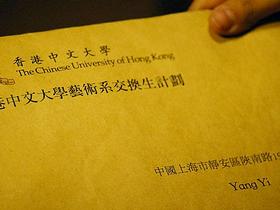 香港中文大學
The Chinese University of Hong Kong
港中文大學藝術系交換生計劃
中國上海市靜安區陝南路19
Yang Yi